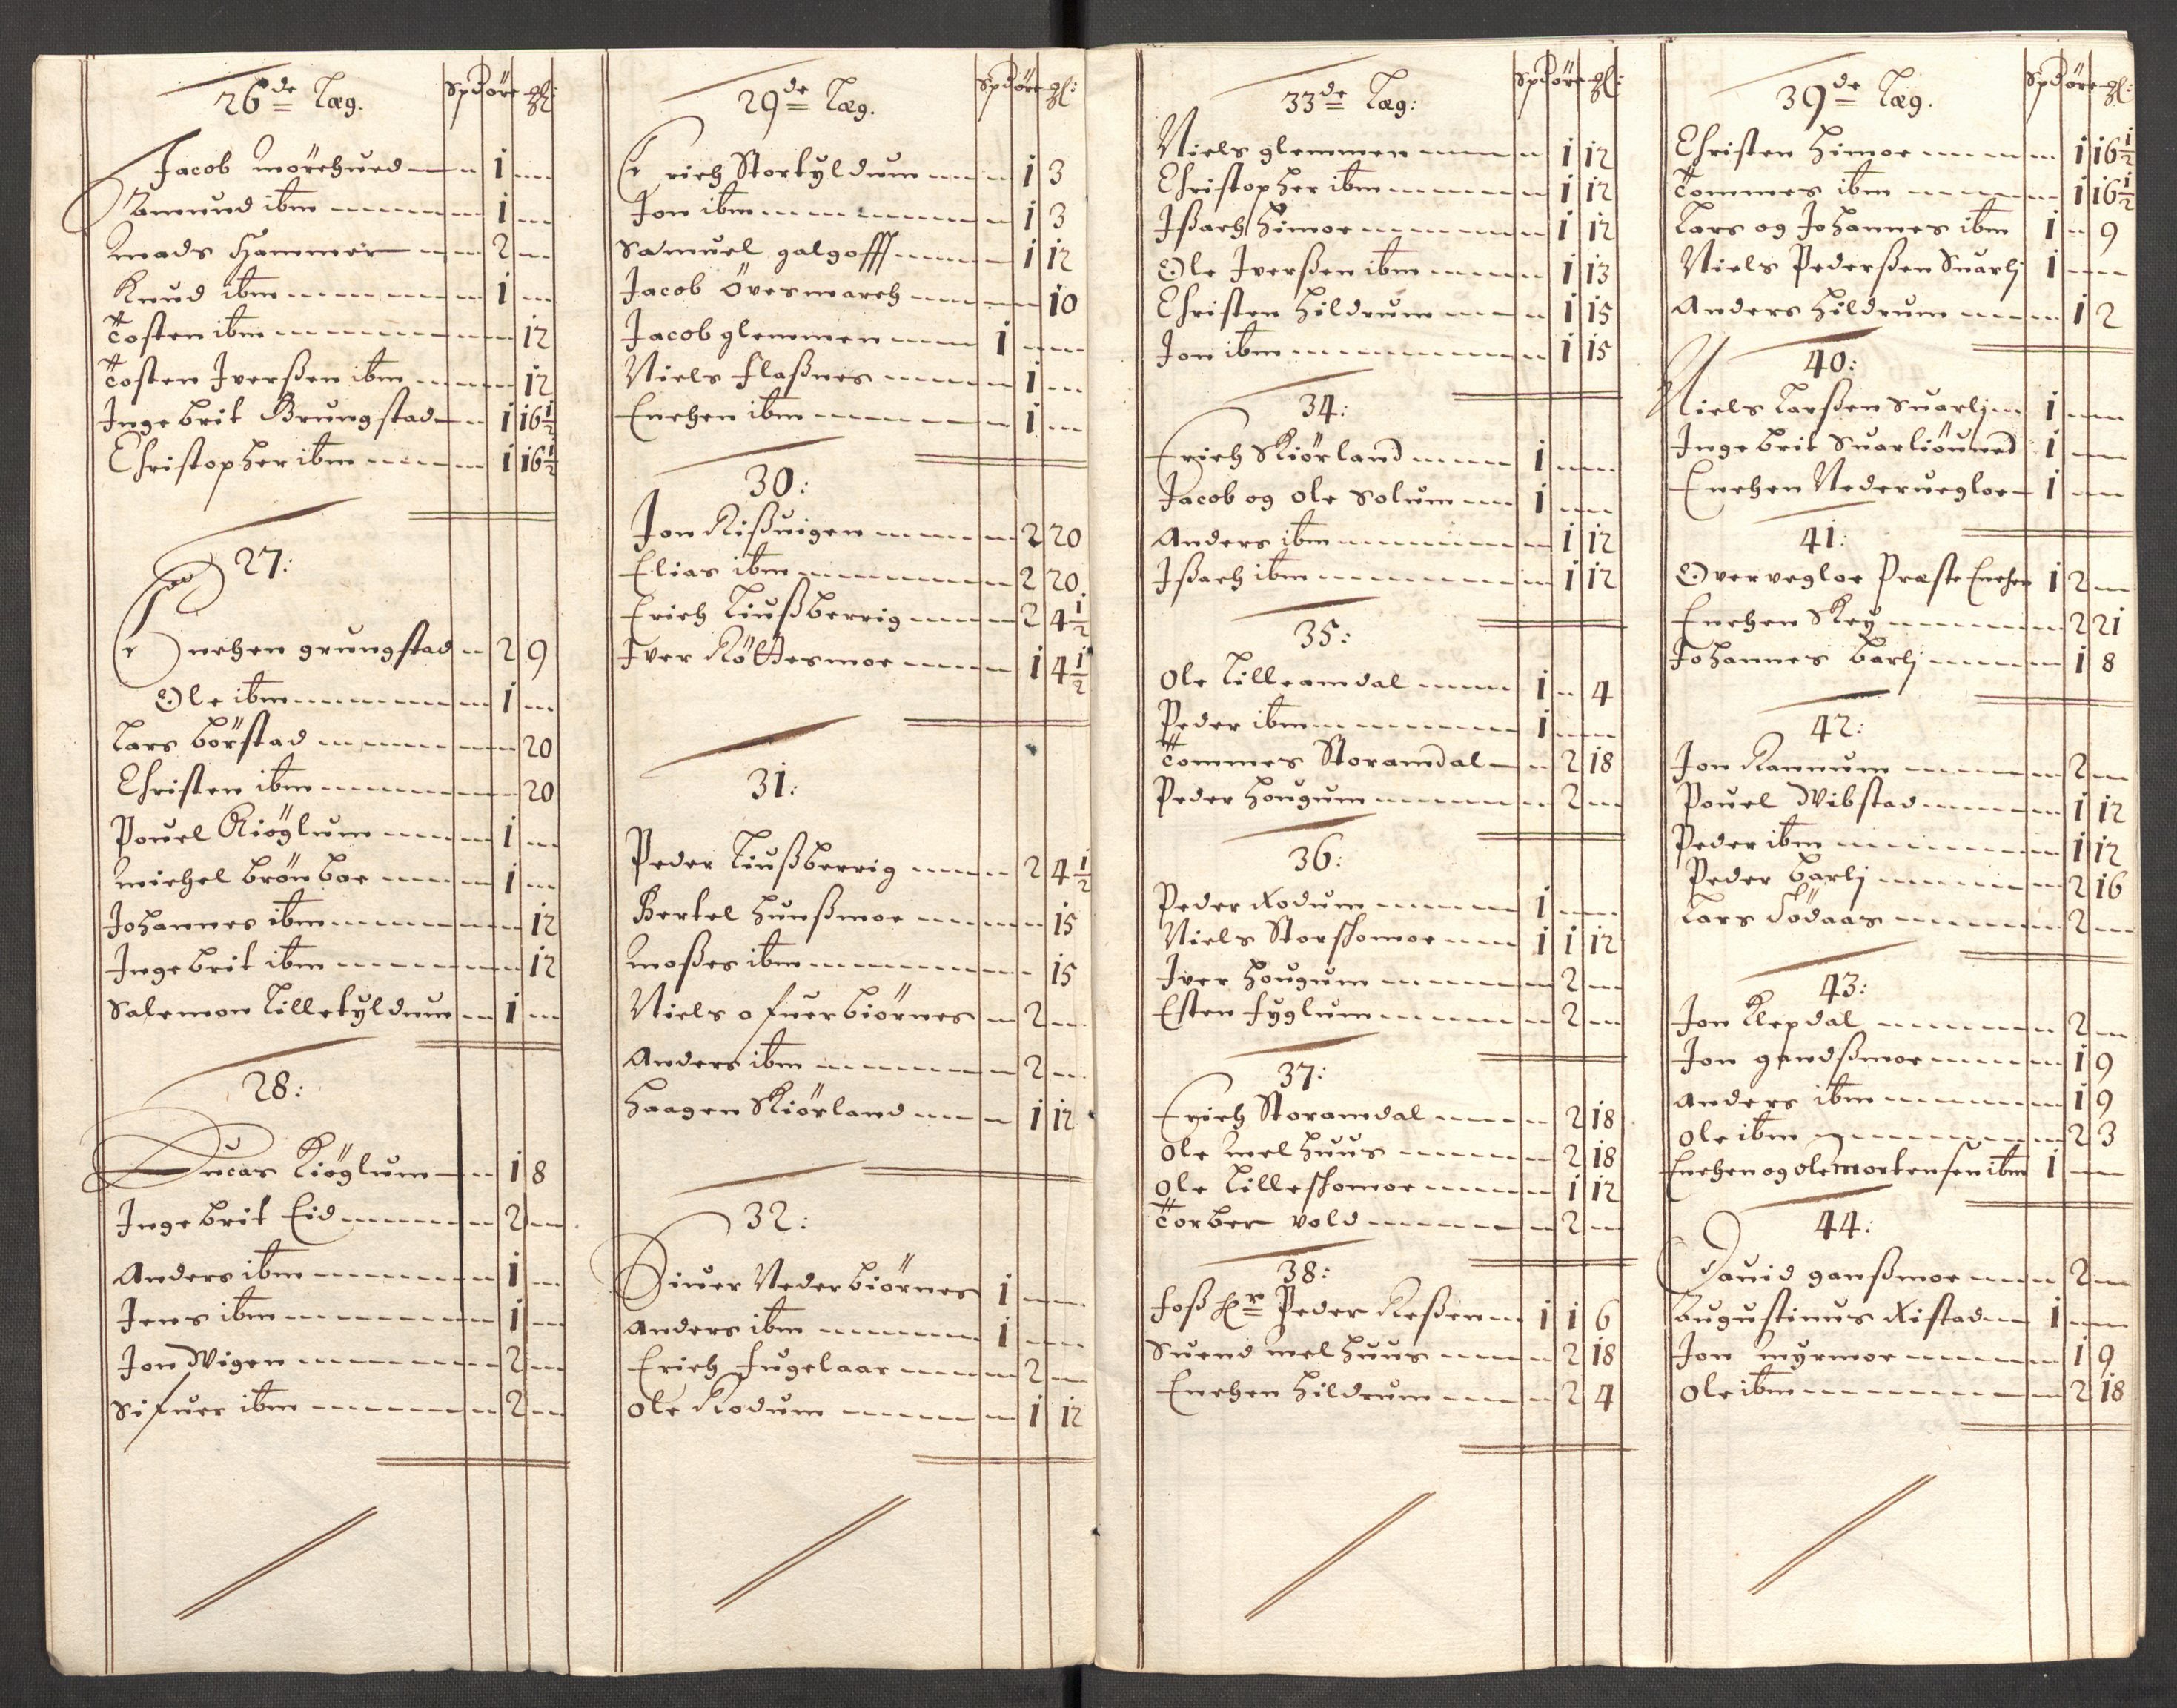 26de Læg. Spd öre gl:
Jacob Mörchued 1
Amund ibm 1
Mads Hammer 2
Knud ibm 1
Tosten ibm 12
Tosten Iverßen ibm 12
Ingebrit Brungstad 1 16½
Christopher ibm 1 16½
27:
Enchen grungstad 2 9
Ole ibm 1
Lars börstad 20
Christen ibm 20
Pouel Kiöglum 1
Michel brönboe 1
Johannes ibm 12
Ingebrit ibm 12
Salemon Lilletyldum 1
28:
Lucas Kiöglum 1 8
Ingebrit Eid 2
Anders ibm 1
Jens ibm 1
Jon Wigen 2
Sifuer ibm 2
29de Læg. Spd öre gl:
Erich Stortyldum 1 3
Jon ibm 1 3
Samuel galgofff 1 12
Jacob Övesmarch 10
Jacob glemmen 1
Niels flaßnes 1
Enchen ibm 1
30:
Jon Rißuigen 2 20
Elias ibm 2 20
Erich Liußberrig 2 4½
Iver Röttesmoe 1 4½
31:
Peder Liußberrig 2 4½
Bertel hunßmoe 15
Moßes ibm 15
Niels ofuerbiörnes 2
Anders ibm 2
Haagen Skiörland 1 12
32:
Siuer Nederbiörnes 1
Anders ibm 1
Erich fugelaar 2
Ole Rodum 1 12
33de Læg: Spd öre gl:
Niels glemmen 1 12
Christopher ibm 1 12
Ißach himoe 1 12
Ole Iverßen ibm 1 13
Christen hildrum 1 15
Jon ibm 1 15
34:
Erich Skiörland 1
Jacob og Ole Solum 1
Anders ibm 1 12
Ißach ibm 1 12
35:
Ole Lilleamdal 1 4
Peder ibm 1
Tommes Storamdal 2 18
Peder hougum 2
36:
Peder Rodum 1
Niels Storshomoe 1 1 12
Iver hougum 2
Esten fyglum 2
37:
Erich Storamdal 2 18
Ole Melhuus 2 18
Ole Lilleshomoe 1 12
Torber vold 2
38:
foß hr Peder Reßen 1 1 6
Suend Melhuus 2 18
Enchen hildrum 2 4
39de Læg. Spd öre gl:
Christen himoe 1 16½
Tommes ibm 1 16½
Lars og Johannes ibm 1 9
Niels Pederßen Suarlj 1
Anders hildrum 1 2
40:
Niels Larßen Suarlj 1
Ingebrit Suarliöuned 1
Enchen Nederuegloe 1
41:
Overvegloe Præste Enchen 1 2
Enchen Skey 2 21
Johannes barlj 1 8
42:
Jon Rannum 2
Pouel Wibstad 1 12
Peder ibm 1 12
Peder barlj 2 16
Lars Södaas 2
43:
Jon Klepdal 2
Jon gandßmoe 1 9
Anders ibm 1 9
Ole ibm 2 3
Enchen og ole mortensen ibm 1
44:
Dauid ganßmoe 2
Augustinus Ristad 1
Jon myrmoe 1 9
Ole ibm 2 18